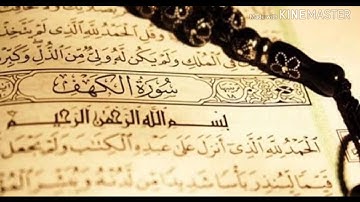 Made with KINEMASTER
وقل الحمد لله الذى لم يتخذ
فى الملك ولم يكن له ولى من الذل وكبره
سورة الكهف
بسم الله الرحمن الرحيم
الحمد لله الذى أنزل على عبده الكتب ولم يجعل
قيما لينذر بأسا شديدا من لدنه ويبشر